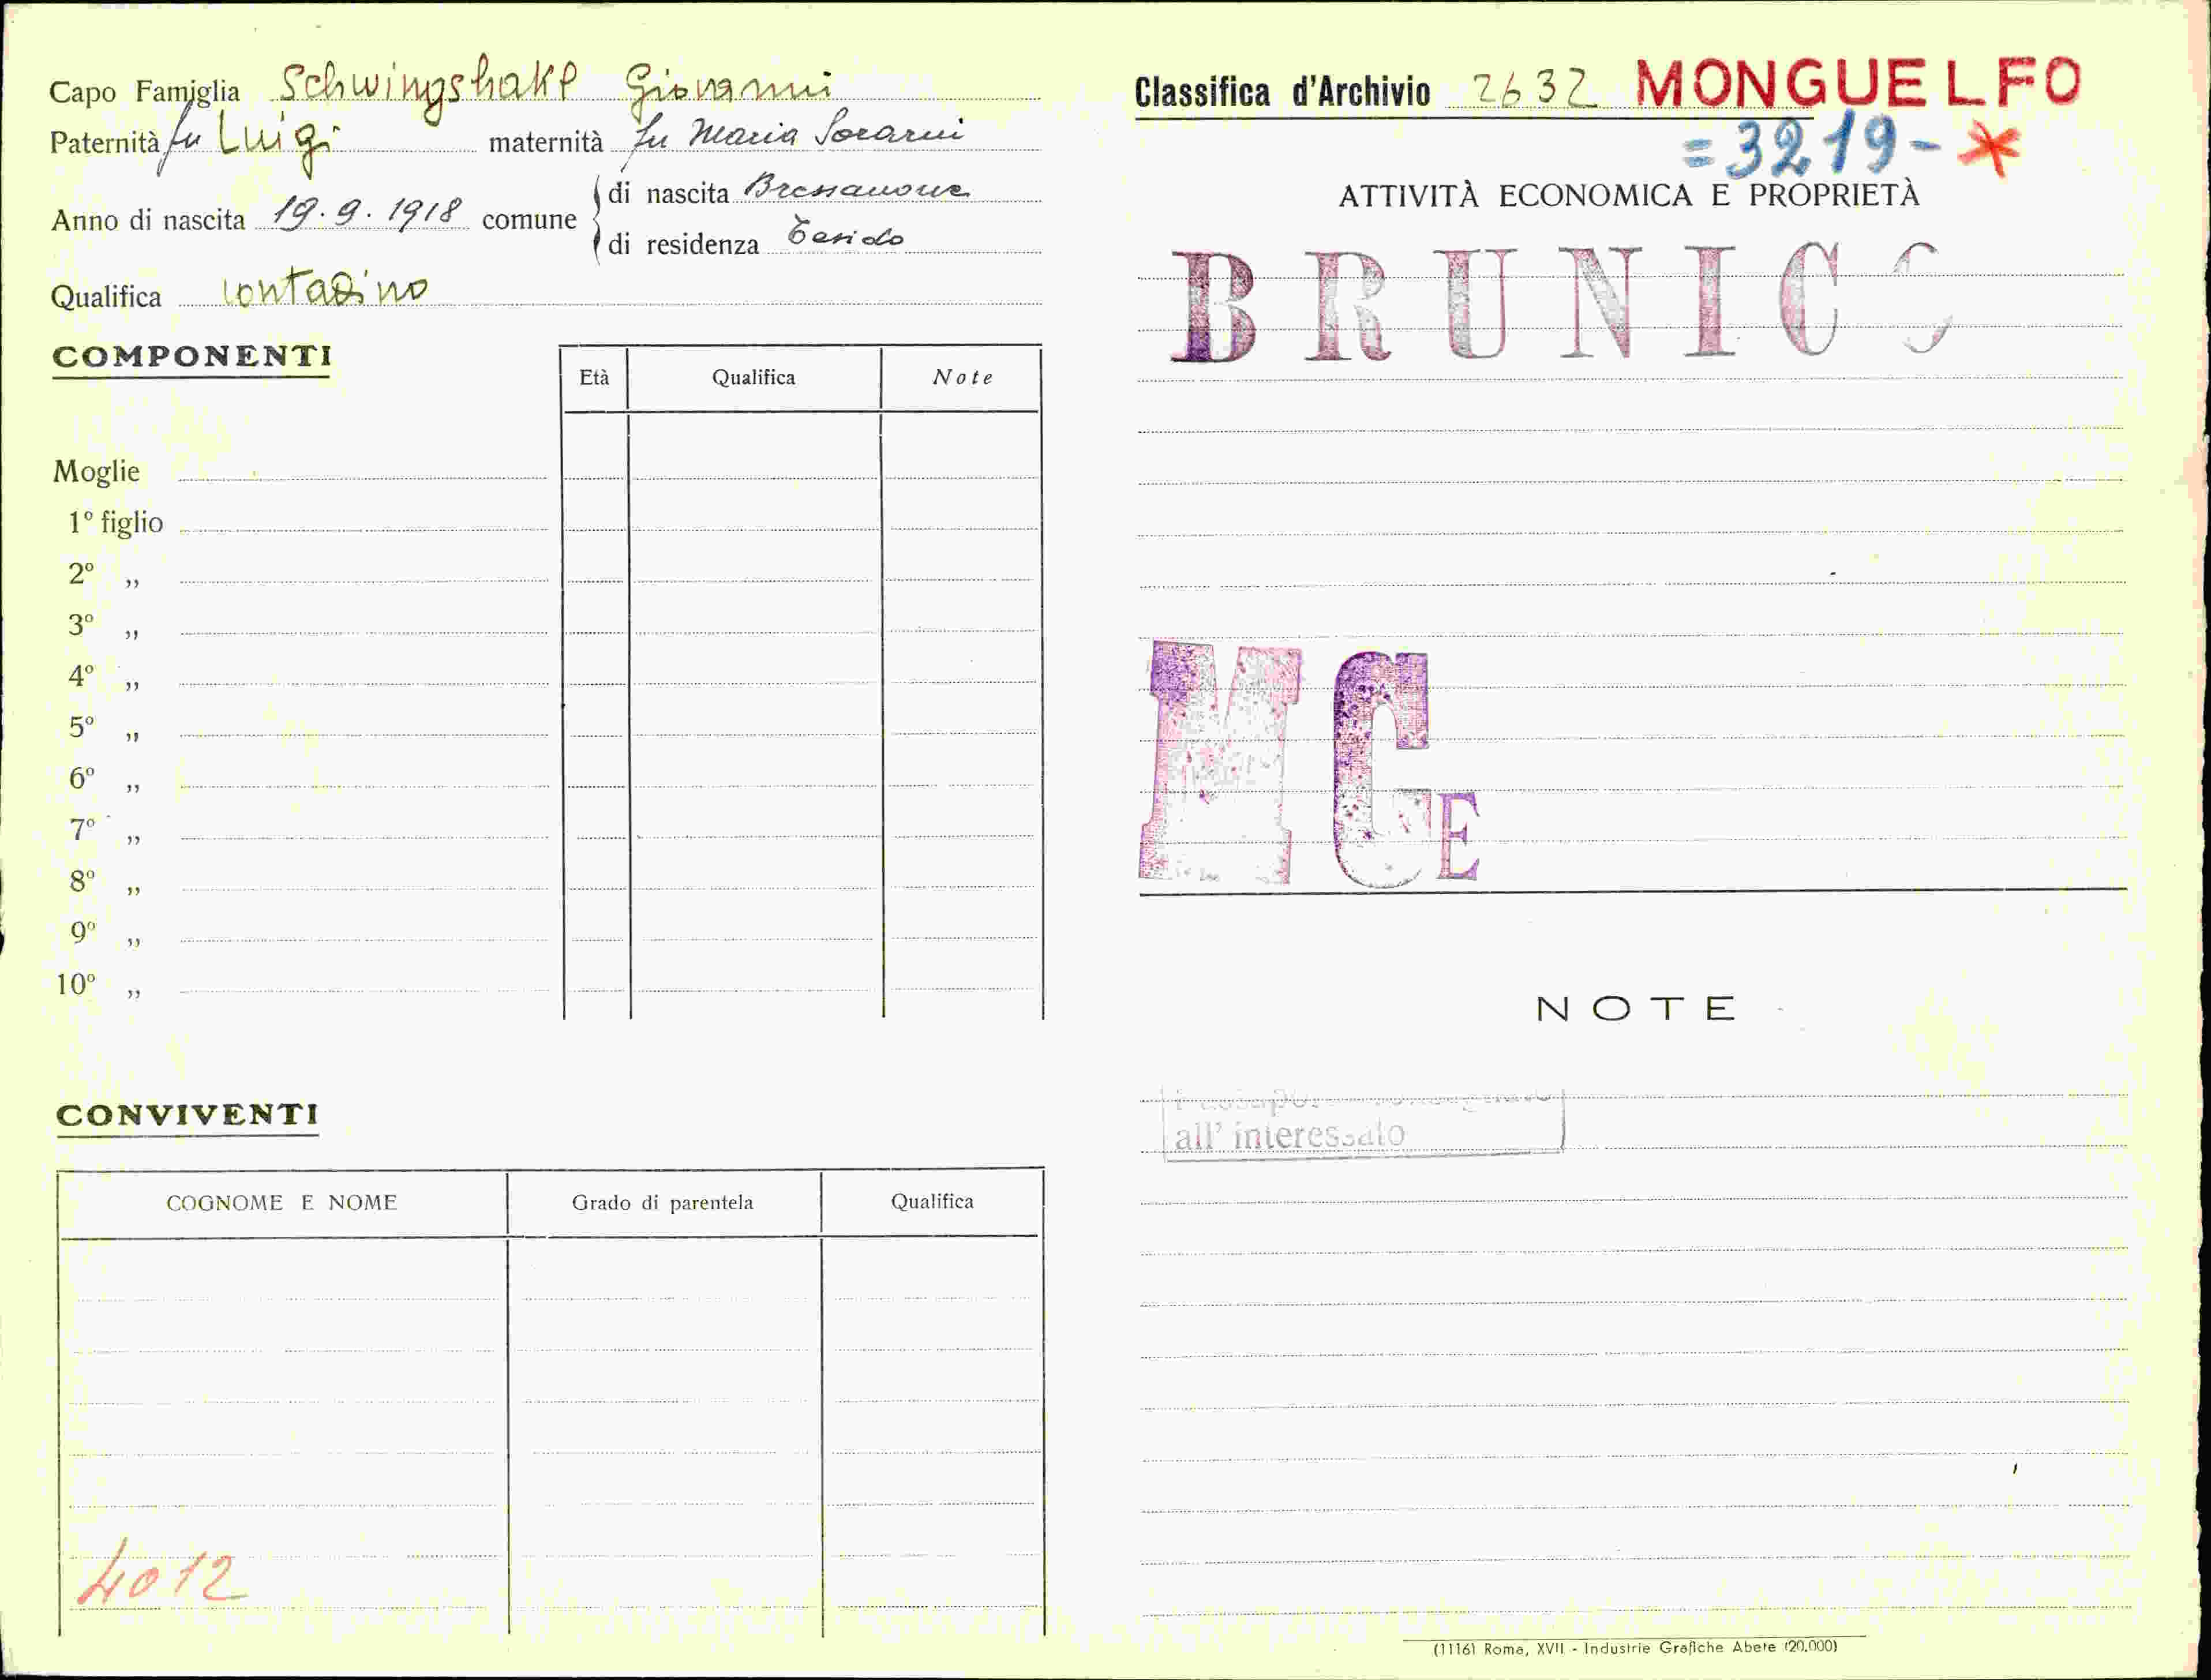 Capo Famiglia Schwingshakl Giovanni
Paternità fu Luigi maternità fu Maria Sorarui
Anno di nascita 19.9.1918 comune di nascita Bressanone
di residenza Tesido
Qualifica contadino
COMPONENTI
Età Qualifica Note
Moglie
1º figlio
2º „
3º „
4º „
5º „
6º „
7º „
8º „
9º „
10º „
CONVIVENTI
COGNOME E NOME Grado di parentela Qualifica
4012
Classifica d'Archivio 2632 MONGUELFO
=3219-*
ATTIVITÀ ECONOMICA E PROPRIETÀ
BRUNICO
MCE
NOTE
all' interessato
(1116) Roma, XVII - Industrie Grafiche Abete (20.000)